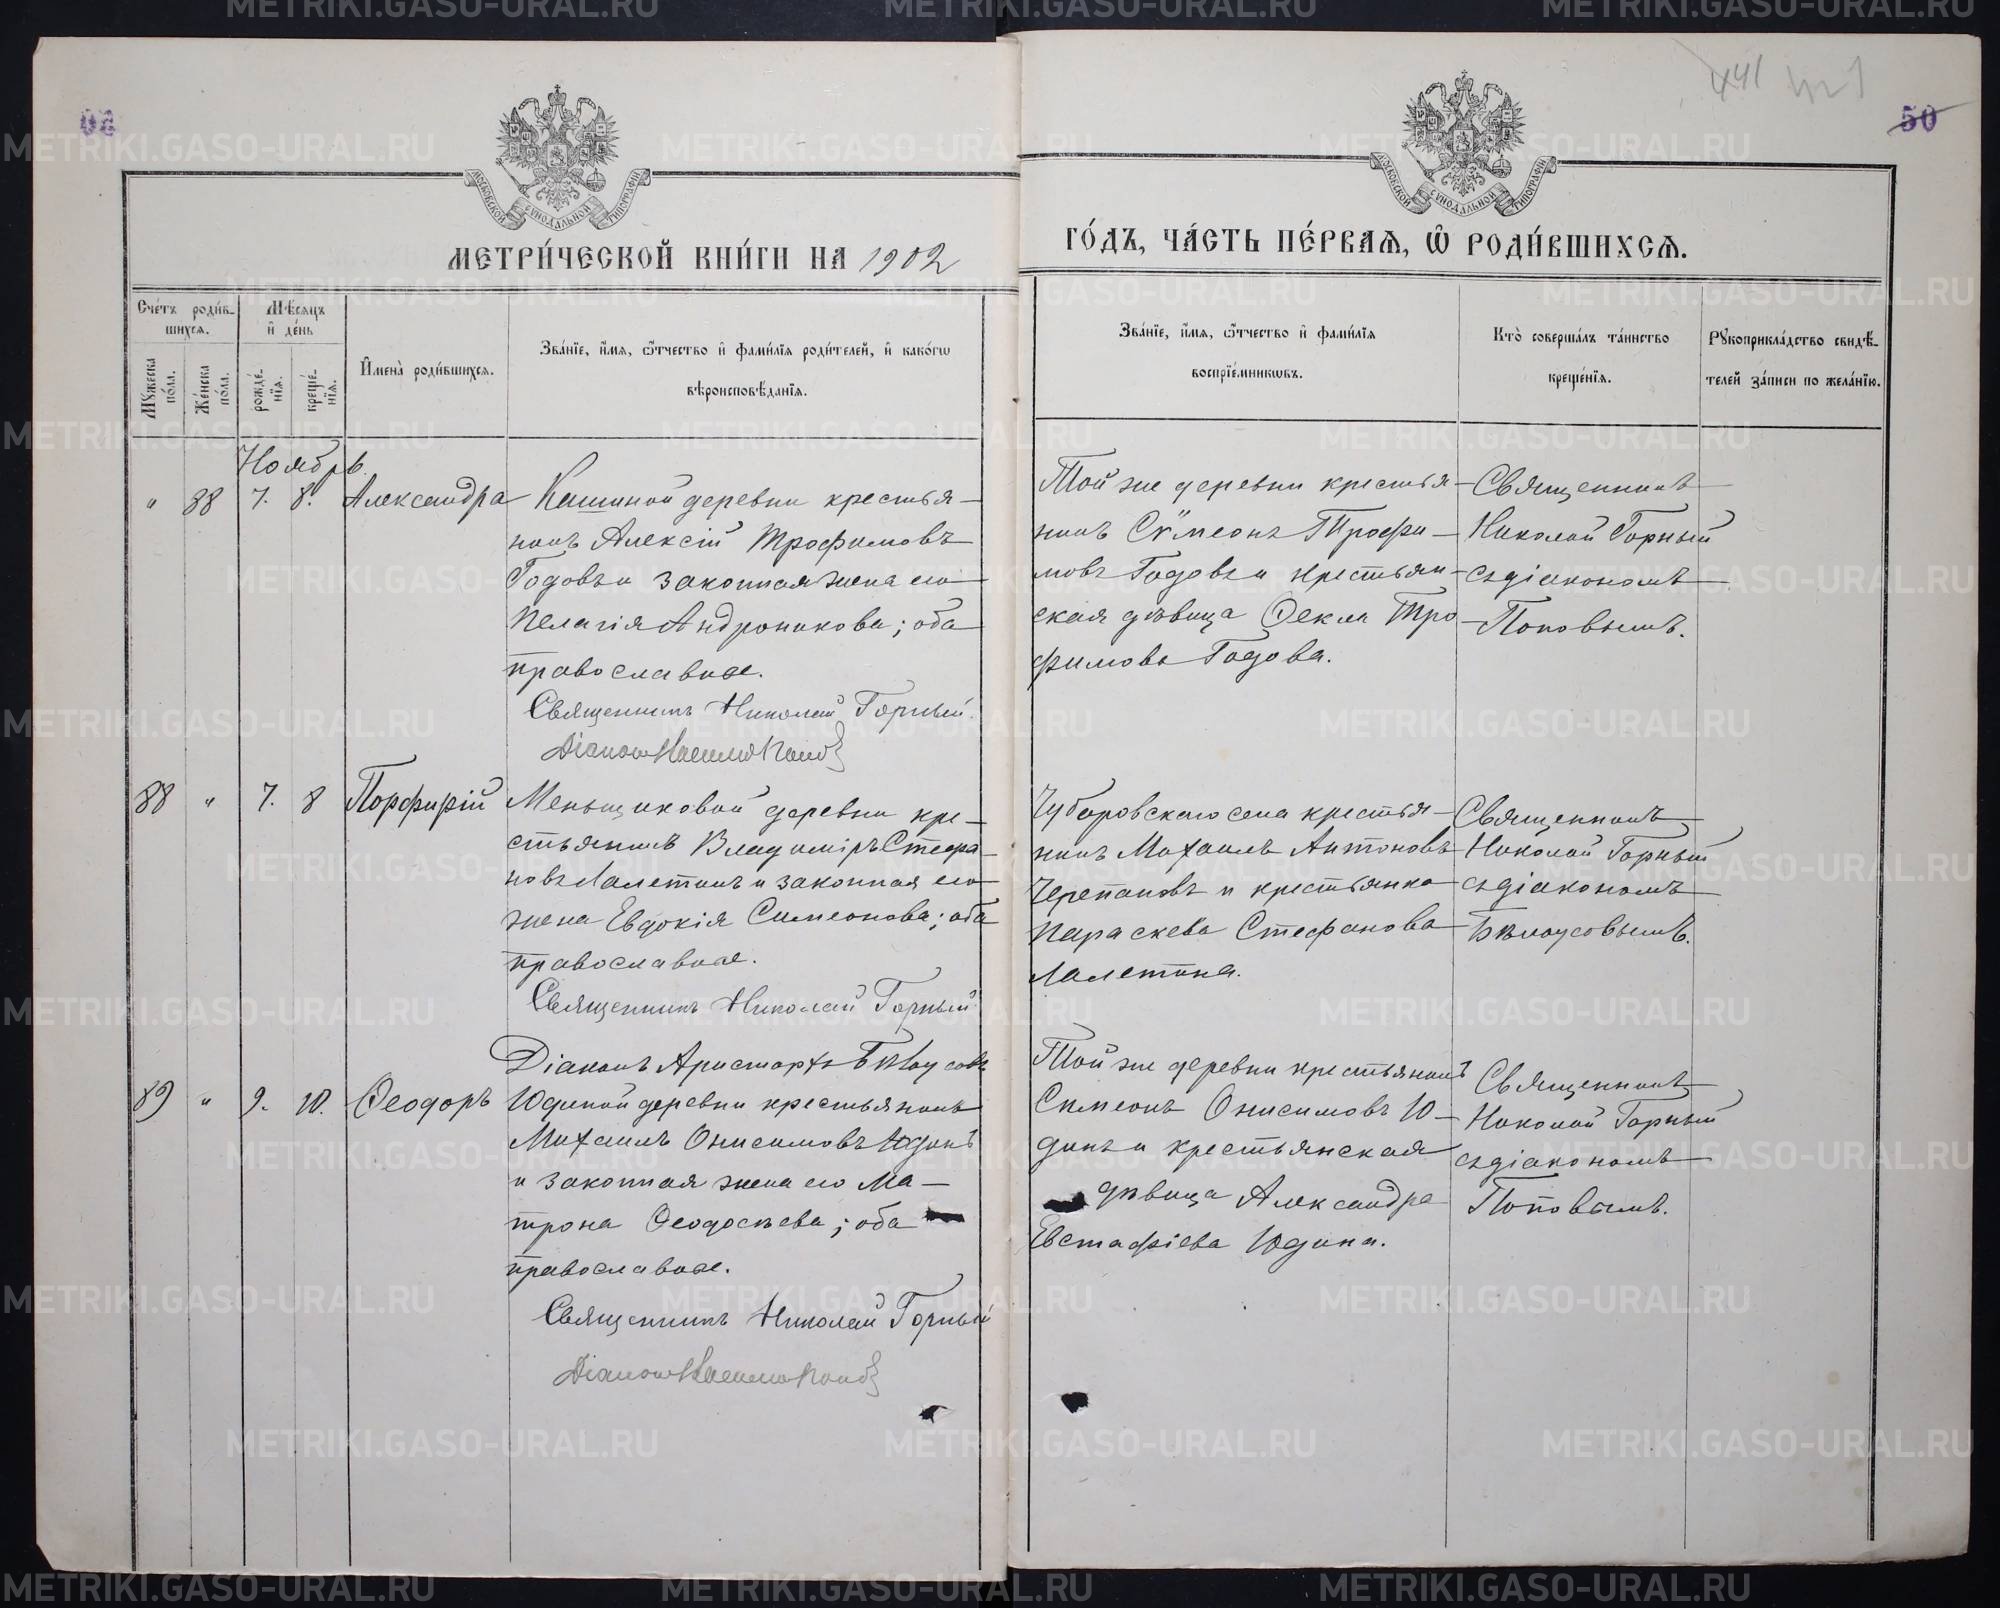 50
441
421
50
МОСКОВСКОЙ СѴНОДАЛЬНОЙ ТИПОГРАФІИ
МОСКОВСКОЙ СѴНОДАЛЬНОЙ ТИПОГРАФІИ
МЕТРИ́ЧЕСКОЙ КНИ́ГИ НА 1902
ГО́ДЪ, ЧА́СТЬ ПЕ́РВАѦ, Ѡ҆ РОДИ́ВШИХСѦ.
Сче́тъ роди́в-
шихсѧ.
Мꙋ́жеска по́ла.
Же́нска по́ла.
Мѣ́сѧцъ
и҆ де́нь
рожде́-
нїѧ.
креще́-
нїѧ.
И҆мена̀ роди́вшихсѧ.
Зва́нїе, и҆́мѧ, ѻ҆́тчество и҆ фами́лїѧ роди́телей, и҆ како́гѡ
вѣроисповѣ́данїѧ.
Зва́нїе, и҆́мѧ, ѻ҆́тчество и҆ фами́лїѧ
воспрїе́мникѡвъ.
Кто̀ соверша́лъ та́инство
креще́нїѧ.
Рꙋкоприкла́дство свидѣ́-
телей за́писи по жела́нїю.
Ноябрь.
" 88 7. 8. Александра
Кашиной деревни крестья-
нинъ Алексій Трофимовъ
Годовъ и законная жена его
Пелагія Андроникова; оба
православные.
Священникъ Николай Горный.
Діаконъ Василій Поповъ
Той же деревни крестья-
нинъ Сѵмеонъ Трофи-
мовъ Годовъ и крестьян-
ская дѣвица Ѳекла Тро-
фимова Годова.
Священникъ
Николай Горный
съ діакономъ
Поповымъ.
88 " 7. 8 Порфирій
Меньщиковой деревни кре-
стьянинъ Владиміръ Стефа-
новъ Лалетинъ и законная его
жена Евдокія Симеонова; оба
православные.
Священникъ Николай Горный
Діаконъ Аристархъ Бѣлоусовъ
Чубаровскаго села крестья-
нинъ Михаилъ Антоновъ
Черепановъ и крестьянка
Параскева Стефанова
Лалетина.
Священникъ
Николай Горный
съ діакономъ
Бѣлоусовымъ.
89 " 9. 10. Ѳеодоръ
Юдиной деревни крестьянинъ
Михаилъ Онисимовъ Юдинъ
и законная жена его Ма-
трона Ѳеодосѣева; оба
православные.
Священникъ Николай Горный
Діаконъ Василій Поповъ
Той же деревни крестьянинъ
Симеонъ Онисимовъ Ю-
динъ и крестьянская
дѣвица Александра
Евстафіева Юдина.
Священникъ
Николай Горный
съ діакономъ
Поповымъ.